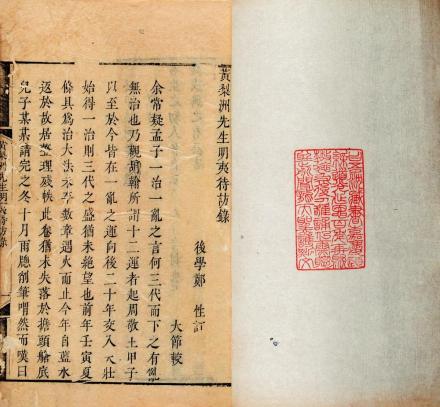 黃梨洲先生明夷待訪錄
後學鄭　性訂
大節較
余常疑孟子一治一亂之言何三代而下之有亂
無治也乃觀胡翰所謂十二運者起周敬王甲子
以至於今皆在一亂之運向後二十年交入大壯
始得一治則三代之盛猶未絕望也前年壬寅夏
條具為治大法未卒數章遇火而止今年自藍水
返於故居整理殘帙此卷猶未失落於擔頭艙底
兒子某某請完之冬十月雨牕削筆喟然而嘆曰
黃梨洲先生明夷待訪錄